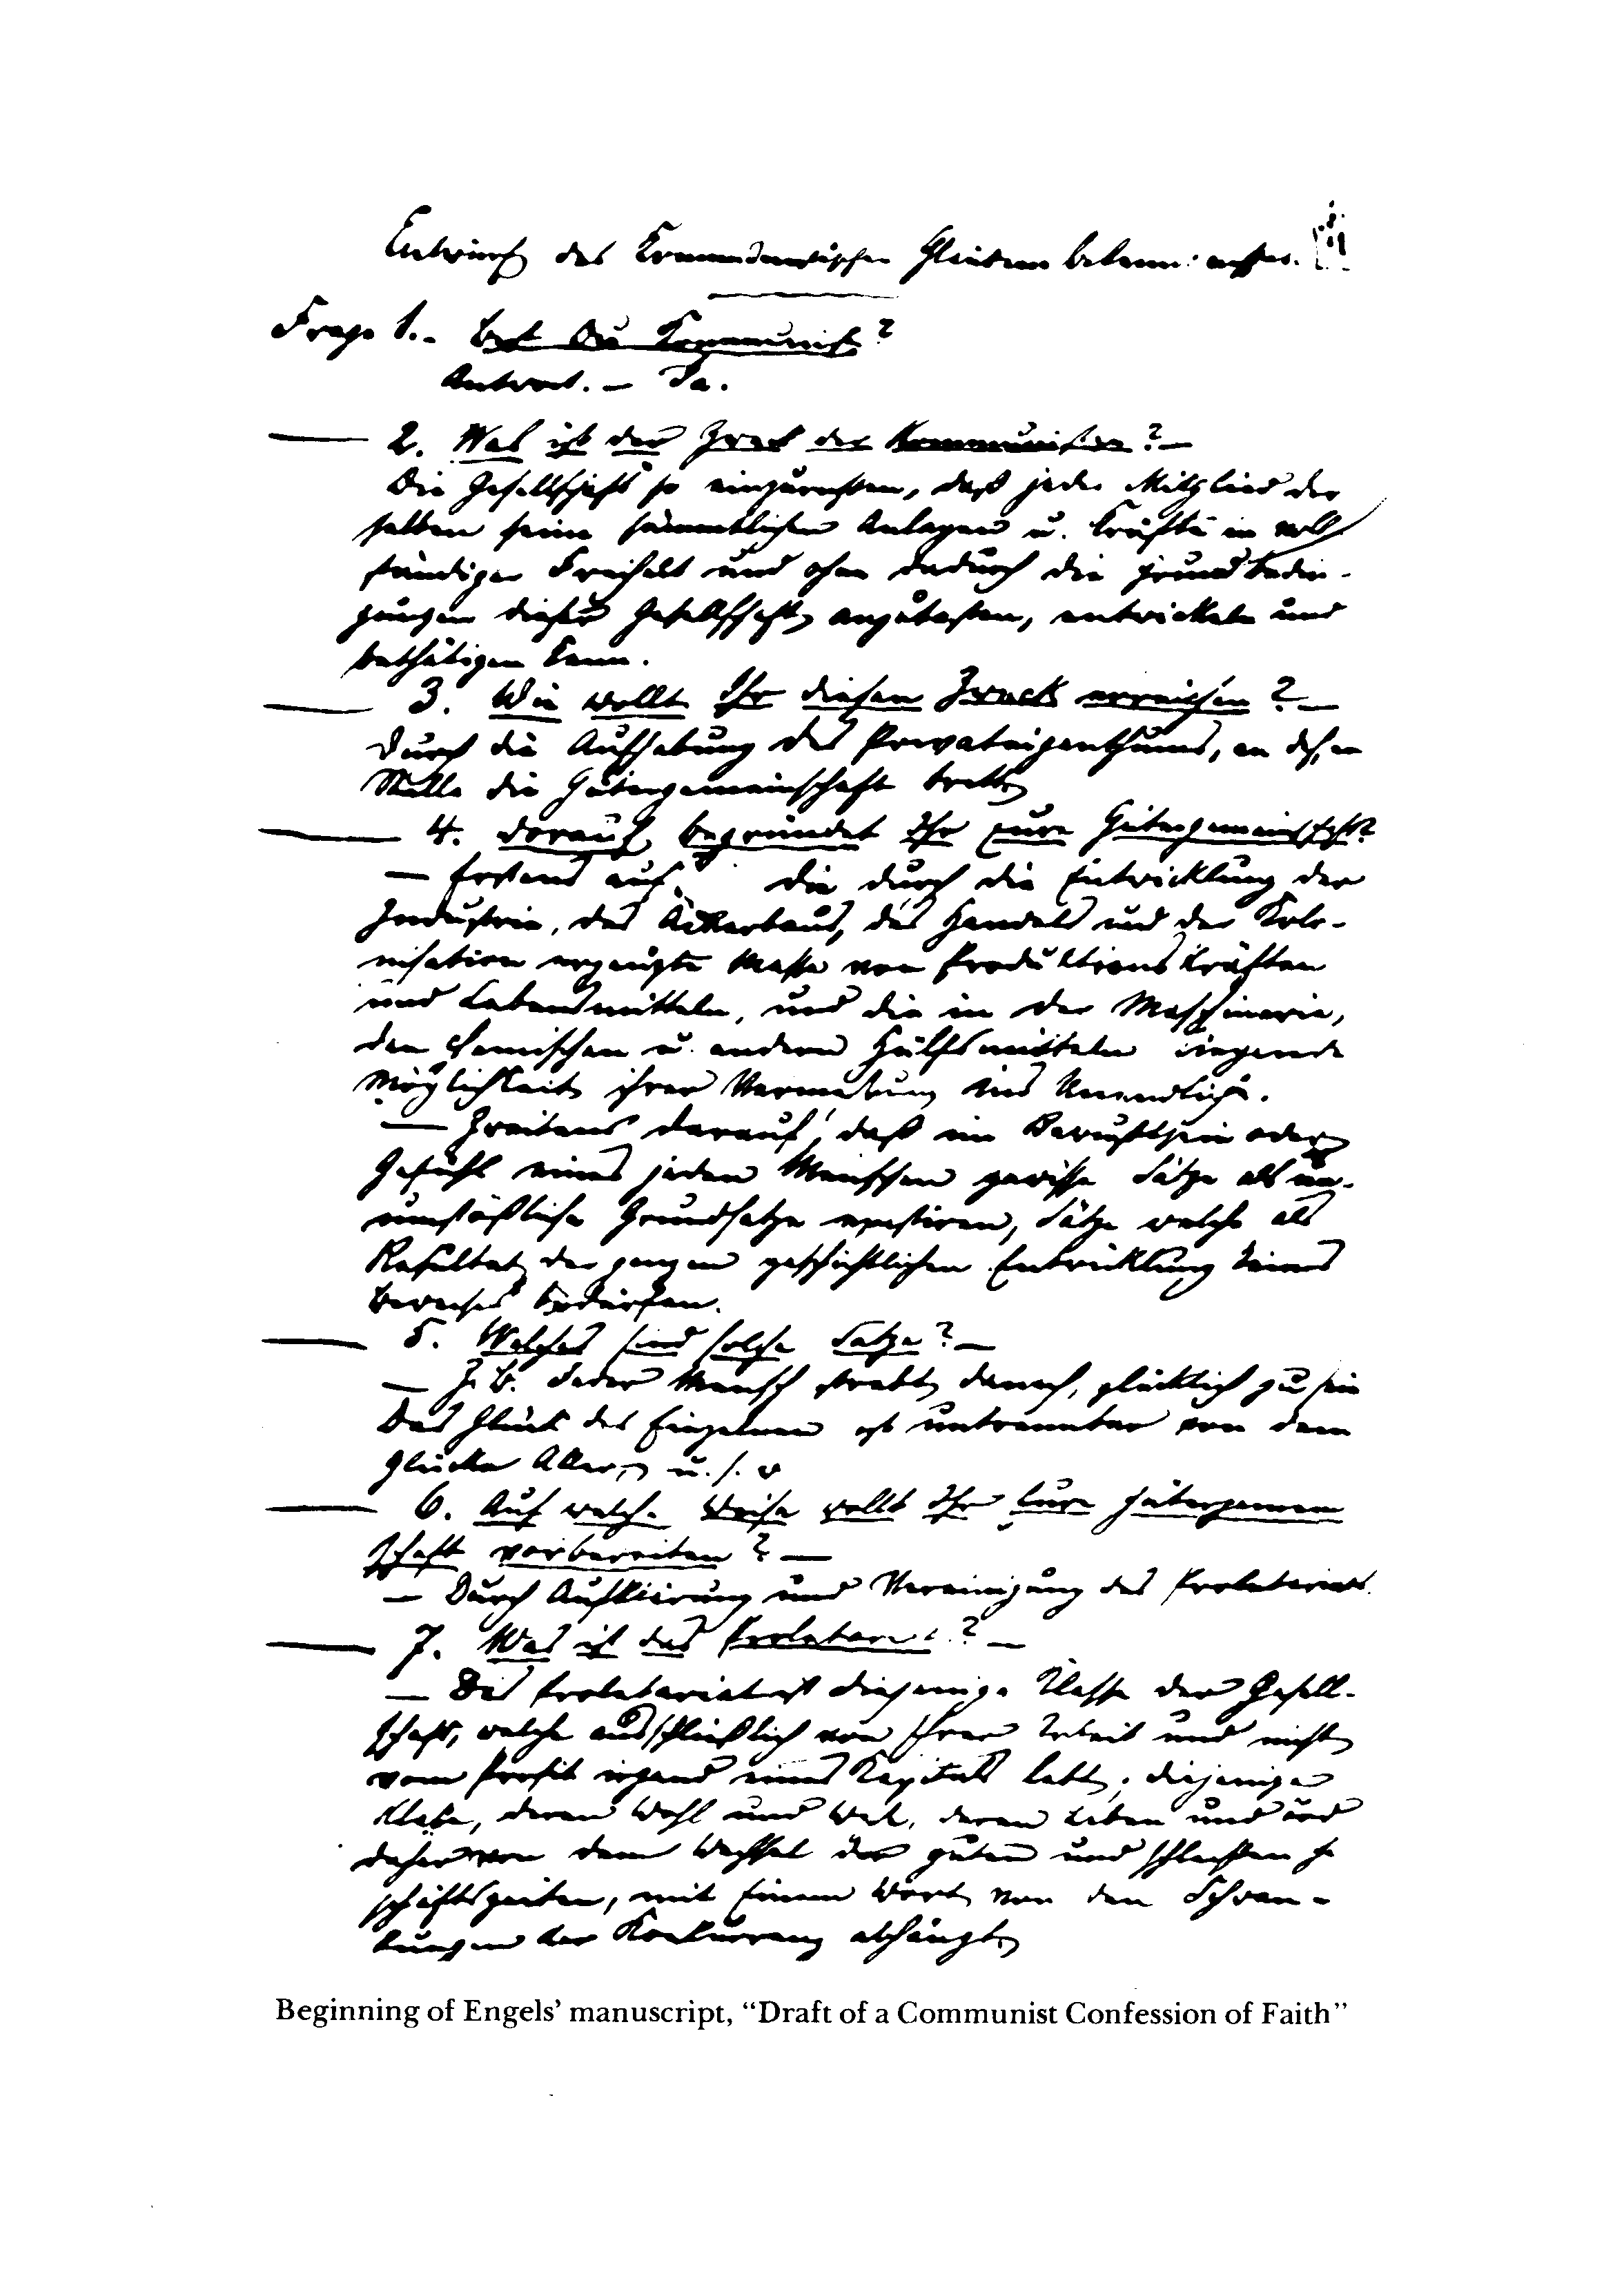 Entwurf des Kommunistischen Glaubensbekenntnisses.
Frage 1. – Bist Du Kommunist?
Antwort. – Ja.
— 2. Was ist der Zweck der Kommunisten? –
Die Gesellschaft so einzurichten, daß jedes Mitglied der
selben seine sämmtlichen Anlagen u. Kräfte in voll
ständiger Freiheit und ohne dadurch die Grundbedin-
gungen dieser Gesellschaft anzutasten, entwickeln und
bethätigen kann.
— 3. Wie wollt Ihr diesen Zweck erreichen? –
Durch die Aufhebung des Privateigenthums, an dessen
Stelle die Gütergemeinschaft tritt.
— 4. Worauf begründet Ihr Eure Gütergemeinschaft?
— Erstens auf die durch die Entwicklung der
Industrie, des Ackerbaus, des Handels und der Kolo-
nisation erzeugte Masse von Produktionskräften
und Lebensmitteln, und die in der Maschinerie,
den chemischen u. andern Hülfsmitteln liegende
Möglichkeit ihrer Vermehrung ins Unendliche.
— Zweitens darauf, daß im Bewußtsein oder
Gefühl eines jeden Menschen gewisse Sätze als un-
umstößliche Grundsätze existiren, Sätze welche als
Resultat der ganzen geschichtlichen Entwicklung keines
Beweises bedürfen.
— 5. Welches sind solche Sätze? –
— Z. B. Jeder Mensch strebt danach, glücklich zu sein
Das Glück des Einzelnen ist untrennbar von dem
Glücke Aller, u. s. w
— 6. Auf welche Weise wollt Ihr Eure Gütergemein
schaft vorbereiten? –
— Durch Aufklärung und Vereinigung des Proletariats.
— 7. Was ist das Proletariat? –
— Das Proletariat ist diejenige Klasse der Gesell-
schaft, welche ausschließlich von ihrer Arbeit und nicht
vom Profit irgend eines Kapitals lebt; diejenige
Klasse, deren Wohl und Weh, deren Leben und Tod
daher von dem Wechsel der guten und schlechten Ge
schäftszeiten, mit Einem Wort von den Schwan-
kungen der Konkurrenz abhängt.
Beginning of Engels’ manuscript, “Draft of a Communist Confession of Faith”